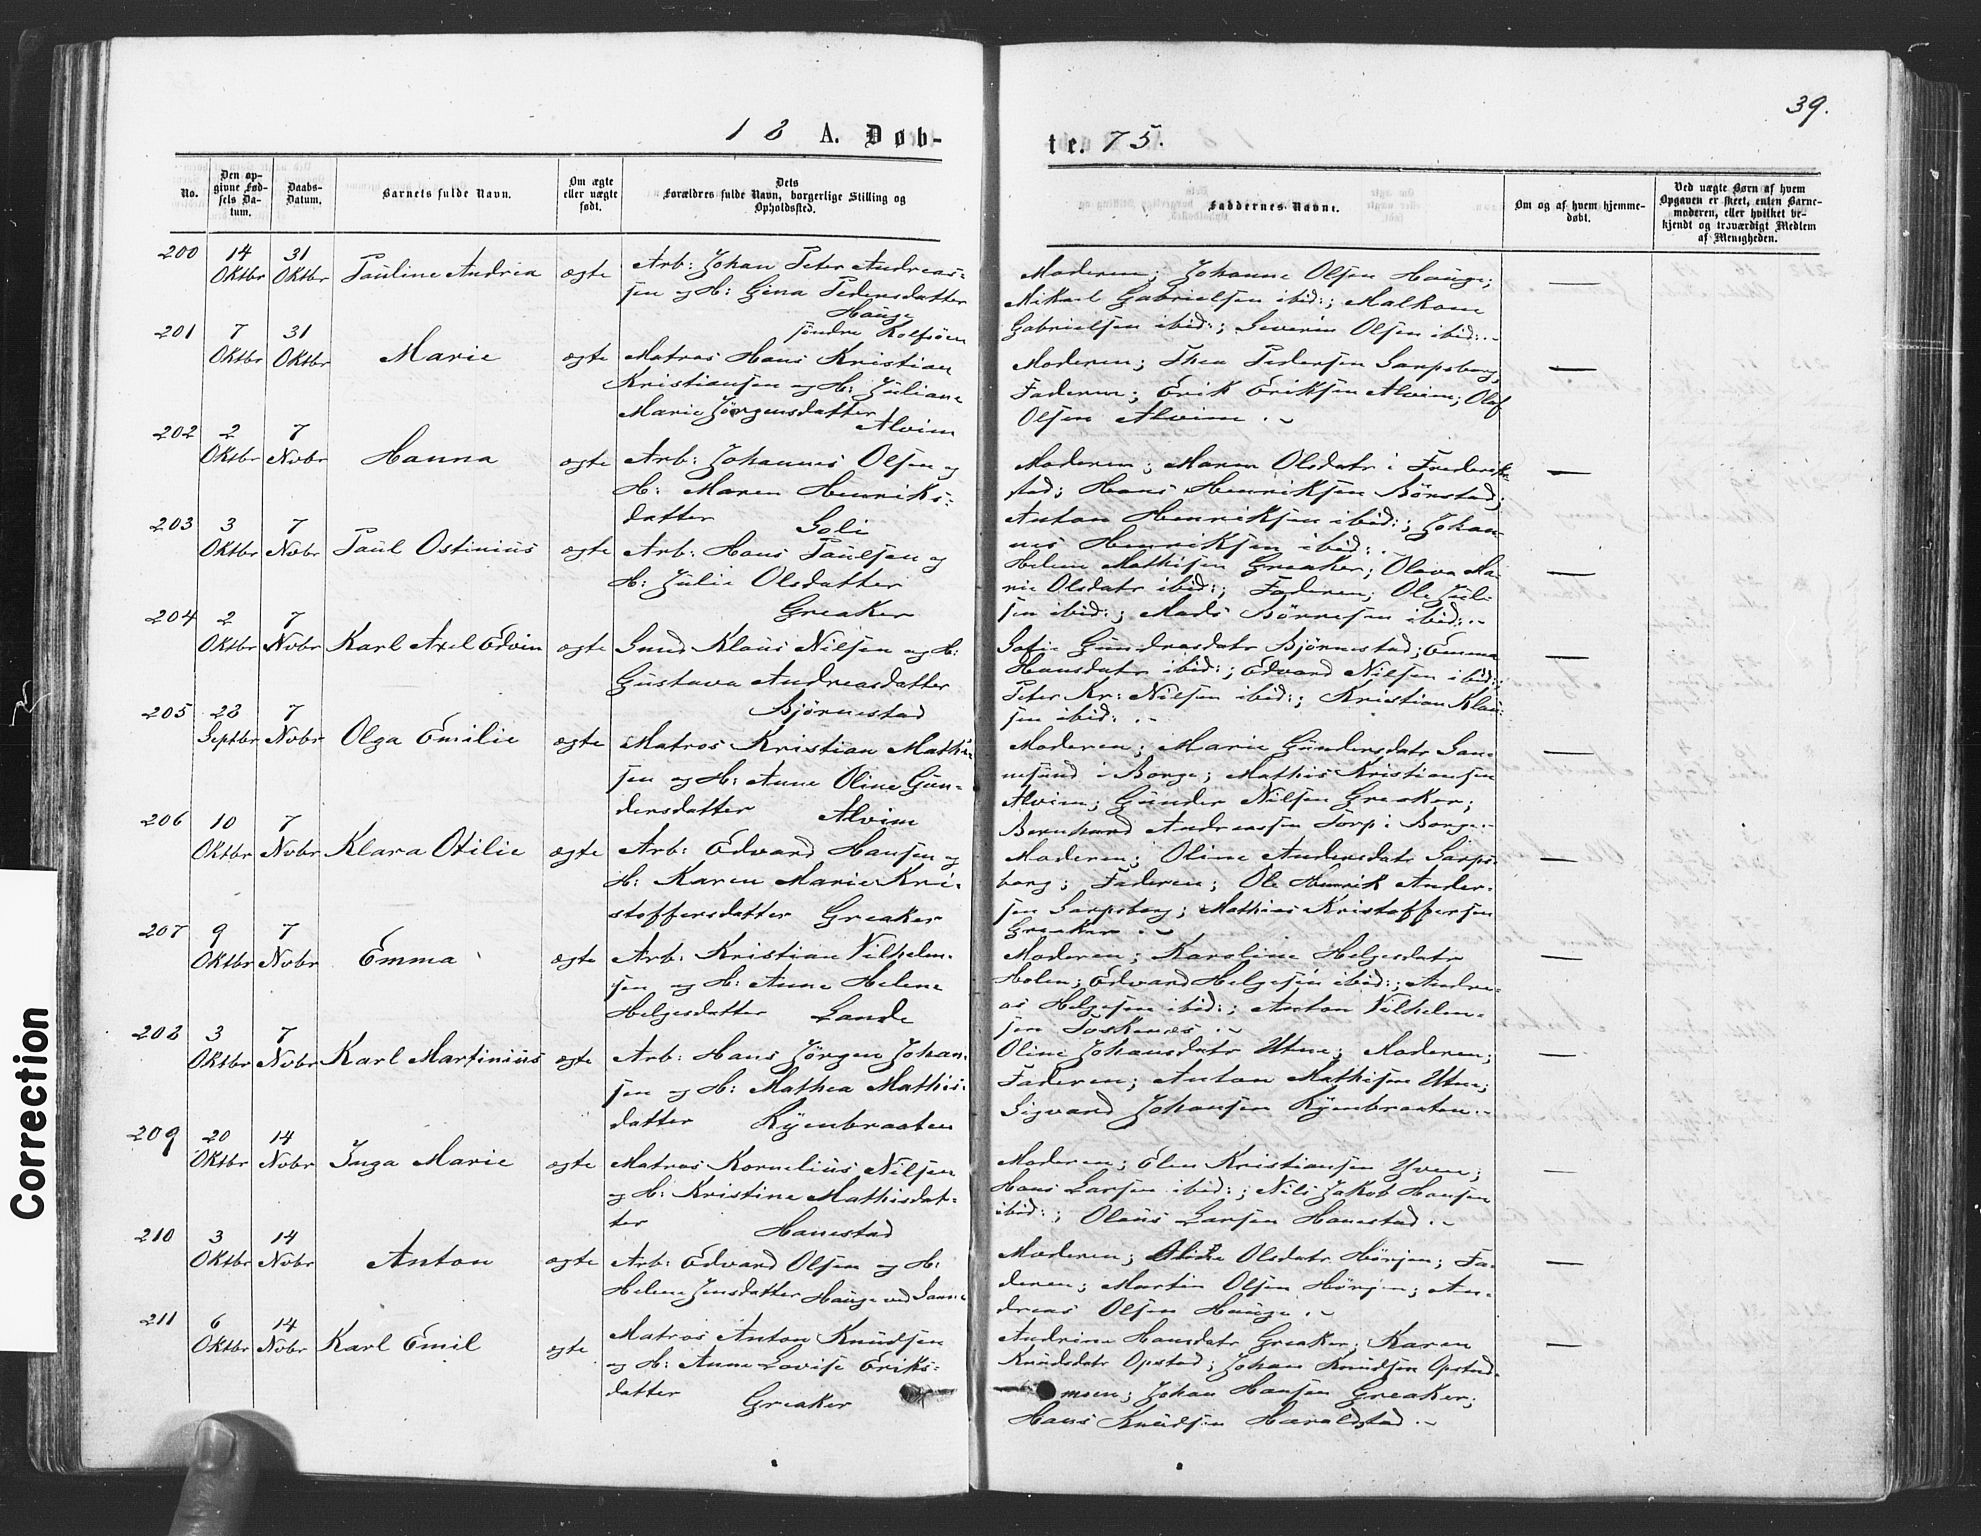 39.
18 A. Døb-
te. 75.
No.
Den op-
givne Fød-
sels Da-
tum.
Daabs-
Datum.
Barnets fulde Navn.
Om ægte
eller uægte
født.
Dets
Forældres fulde Navn, borgerlige Stilling og
Opholdssted.
Faddernes Navne.
Om og af hvem hjemme-
døbt.
Ved uægte Børn af hvem
Opgaven er skeet, enten Barne-
moderen, eller hvilket be-
kjendt og troværdigt Medlem
af Menigheden.
200 14 Oktbr 31 Oktbr Pauline Andrea ægte
Arb: Johan Peter Andreas-
sen og H: Gina Pedersdatter
Hauge
søndre Rolfsøen
Moderen; Johanne Olsen Hauge;
Mikael Gabrielsen ibid:; Malkom
Gabrielsen ibid:; Severin Olsen ibid:.
201 7 Oktbr 31 Oktbr Marie ægte
Matros Hans Kristian
Kristiansen og H: Juliane
Marie Jørgensdatter
Alvim
Moderen; Thea Pedersen Sarpsborg
Faderen; Erik Eriksen Alvim; Olaf
Olsen Alvim.
202 2 Oktbr 7 Novbr Hanna ægte
Arb: Johannes Olsen og
H: Maren Henriks-
datter Soli
Moderen; Maren Olsdatr i Frederik-
stad; Hans Henriksen Børstad;
Anton Henriksen ibid:; Johan-
nes Henriksen ibid:.
203 3 Oktbr 7 Novbr Paul Ostinius ægte
Arb: Hans Paulsen og
H: Julie Olsdatter
Greaker
Helene Mathisen Greaker; Olava Ma-
rie Olsdatr ibid:; Faderen; Ole Juli-
sen ibid:; Mads Børresen ibid:.
204 2 Oktbr 7 Novbr Karl Axel Edvin ægte
Smed Klaus Nilsen og H:
Gustava Andreasdatter
Bjørnestad
Sofie Gundersdatr Bjørnestad; Emma
Hansdatr ibid:; Edvard Nilsen ibid:;
Peter Kr: Nilsen ibid:; Kristian Klau-
sen ibid:.
205 23 Septbr 7 Novbr Olga Emilie ægte
Matros Kristian Mathi-
sen og H: Anne Oline Gun-
dersdatter Alvim
Moderen; Marie Gundersdatr San-
nesund i Borge; Mathis Kristiansen
Alvim; Gunder Nilsen Greaker;
Bernhard Andreassen Torp i Borge.
206 10 Oktbr 7 Novbr Klara Otilie ægte
Arb: Edvard Hansen og
H: Karen Marie Kri-
stoffersdatter Greaker
Moderen; Oline Andersdatr Sarps-
borg; Faderen; Ole Henrik Ander-
sen Sarpsborg; Mathias Kristoffersen
Greaker.
207 9 Oktbr 7 Novbr Emma ægte
Arb: Kristian Vilhelm-
sen og H: Anne Helene
Helgesdatter Lande
Moderen; Karoline Helgesdatr
Holen; Edvard Helgesen ibid:; Andre-
as Helgesen ibid:; Anton Vilhelm-
sen Toskenæs.
208 3 Oktbr 7 Novbr Karl Martinius ægte
Arb: Hans Jørgen Johan-
sen og H: Mathea Mathis-
datter Kyenbraaten
Oline Johansdatr Utne; Moderen;
Faderen; Anton Mathisen Utne;
Sigvard Johansen Kyenbraaten.
209 20 Oktbr 14 Novbr Inga Marie ægte
Matros Kornelius Nilsen
og H: Kristine Mathisdat-
ter Hanestad
Moderen; Elen Kristiansen Yven;
Hans Larsen ibid:; Nils Jakob Hansen
ibid:; Olaus Larsen Hanestad.
210 3 Oktbr 14 Novbr Anton ægte
Arb: Edvard Olsen og H:
Helene Jensdatter Hauge ved Sann
Moderen; Olsdatr Hørgen; Fa-
deren; Martin Olsen Hørgen; An-
dreas Olsen Hauge.
211 6 Oktbr 14 Novbr Karl Emil ægte
Matros Anton Knudsen
og H: Anne Lovise Eriks-
datter
Greaker
Andrine Hansdatr Greaker; Karen
Knudsdatr Opstad; Johan Knudsen Opstad
Johan Hansen Greaker;
Hans Knudsen Haraldstad.
Correction